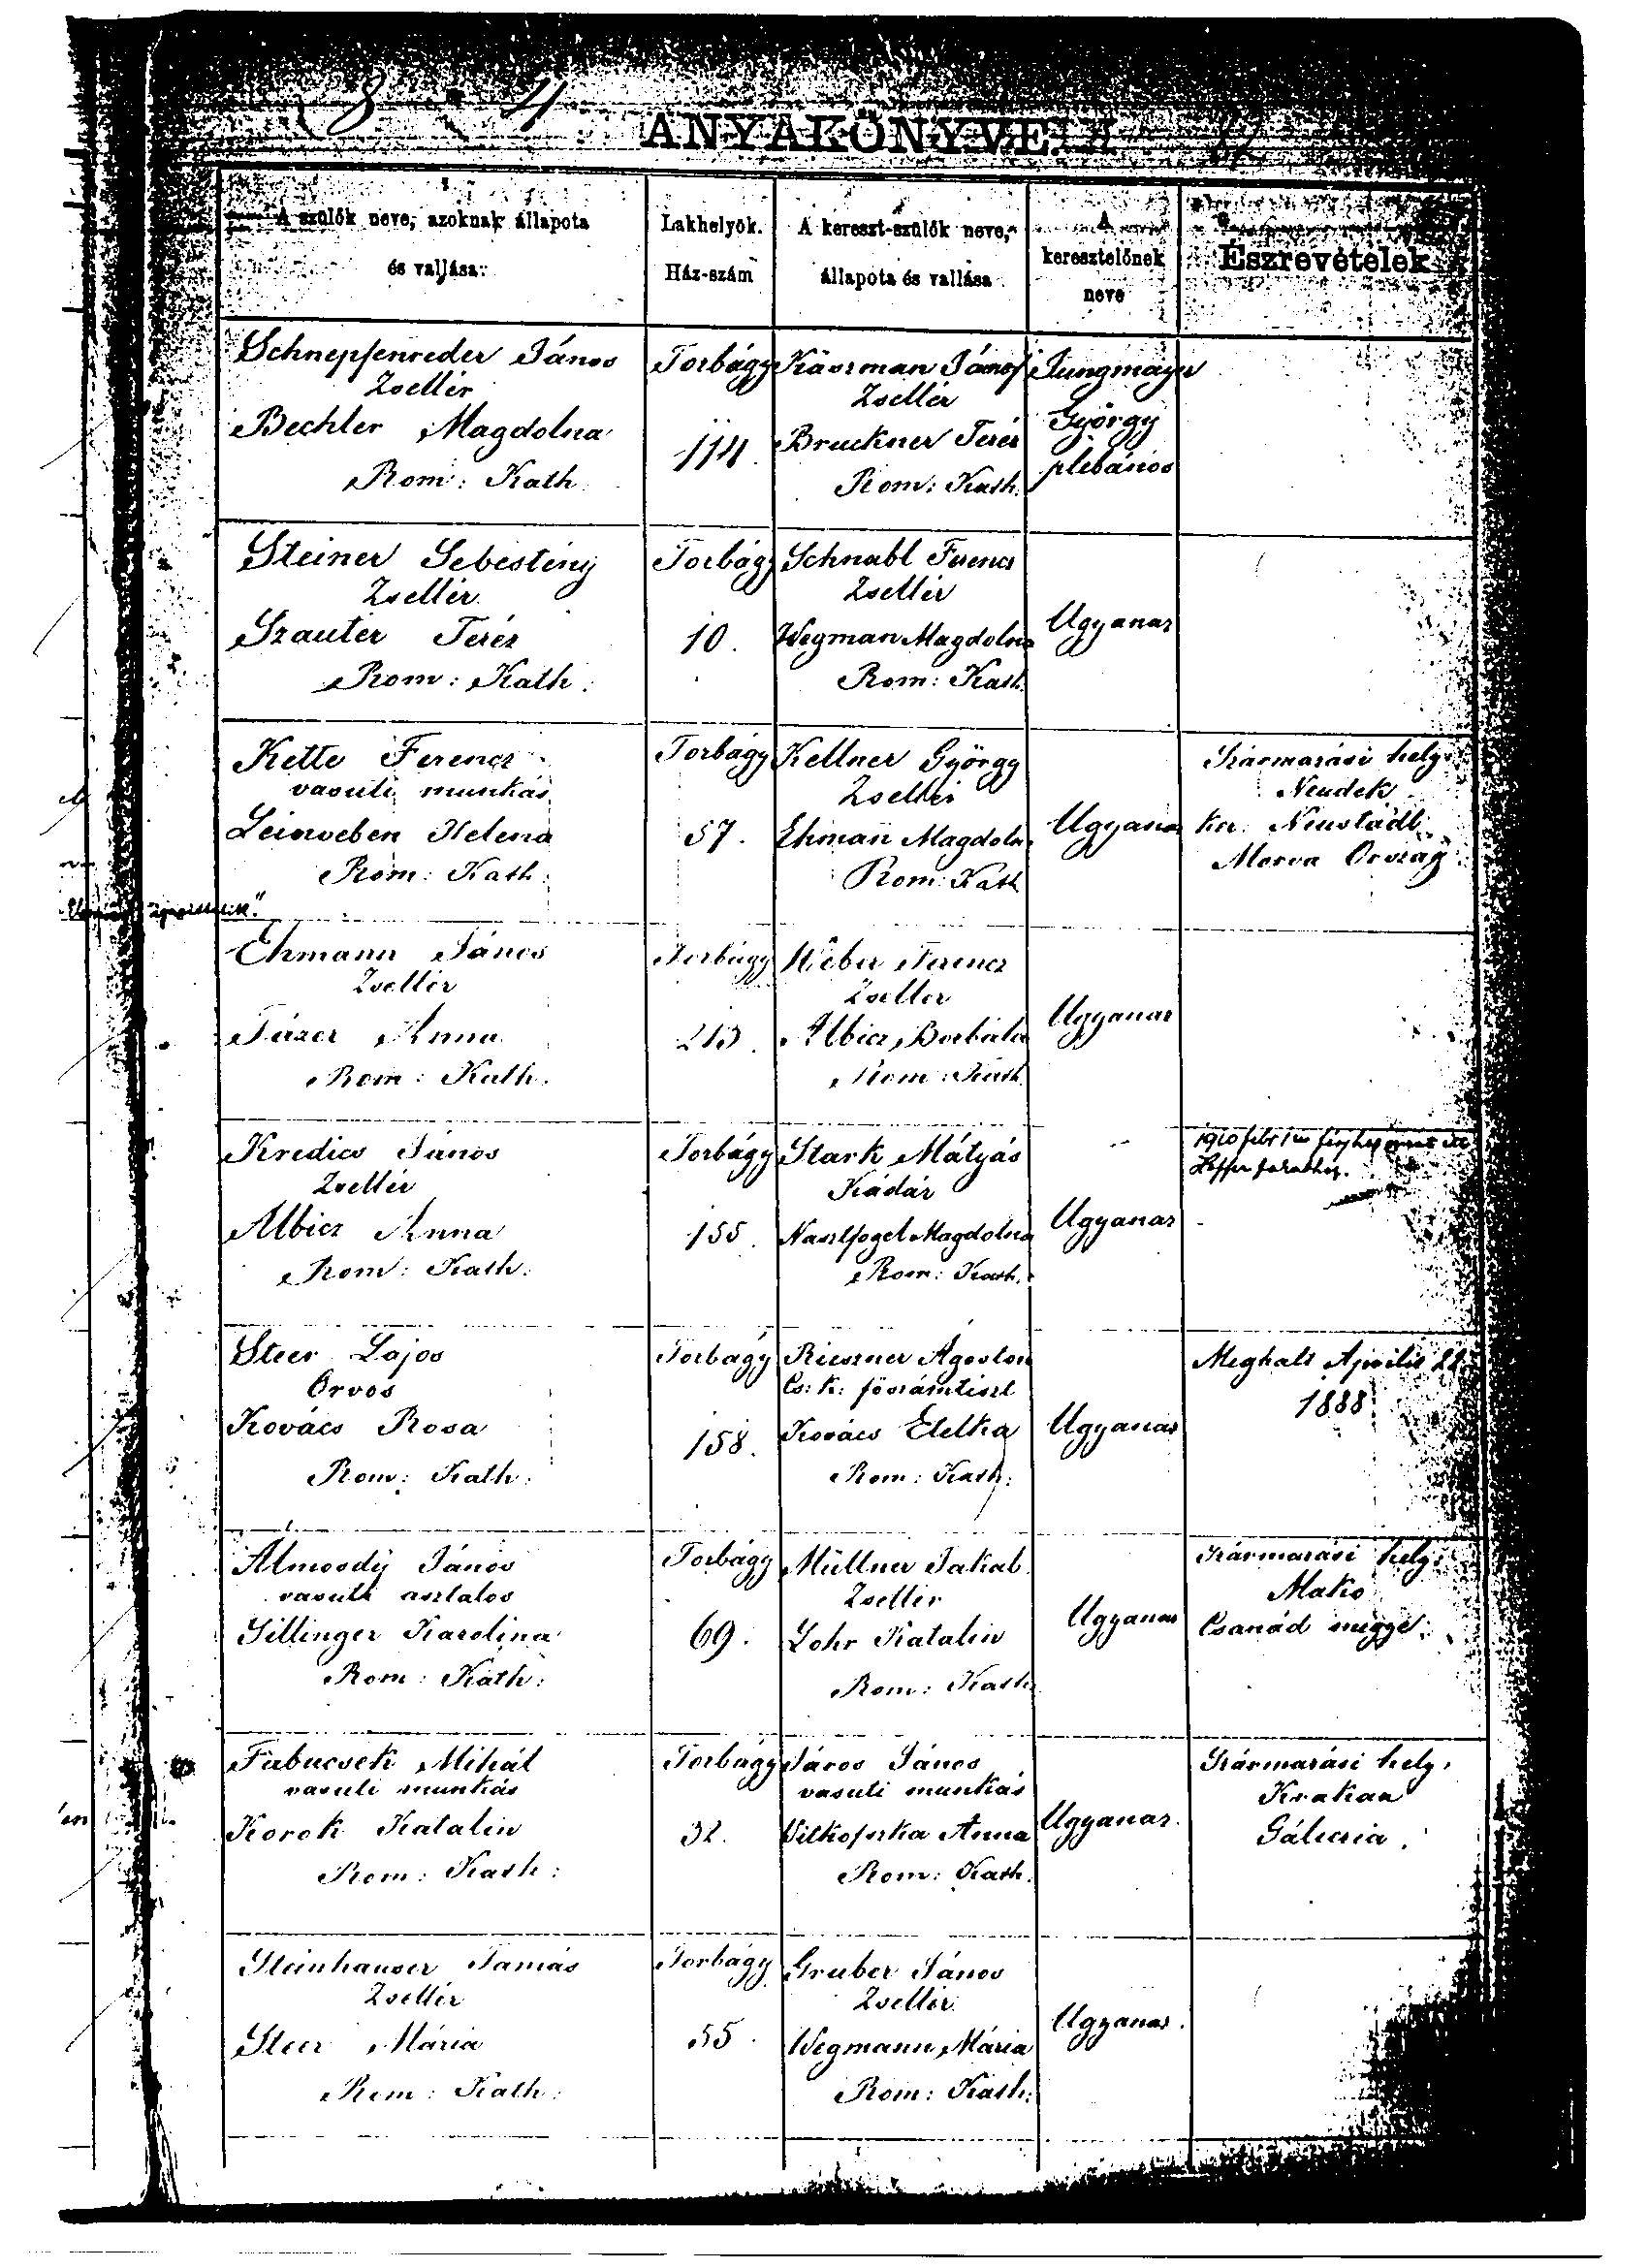 ANYAKÖNYVE
A szülők neve, azoknak állapota
és vallása
Lakhelyök.
Ház-szám
A kereszt-szülők neve,
állapota és vallása
A
keresztelőnek
neve
Észrevételek
Schnepfenreder János
Zsellér
Bechler Magdolna
Rom: Kath.
Torbágy
114.
Käsrman János
Zsellér
Bruckner Teréz
Rom: Kath.
Jungmayer
György
plébános
Steiner Sebestény
Zsellér
Szauter Teréz
Rom: Kath:
Torbágy
10.
Schnabl Ferencz
Zsellér
Wegman Magdolna
Rom: Kath.
Ugyanaz
Kette Ferencz
vasuti munkás
Leinveben Helena
Rom: Kath:
Torbágy
57.
Kellner György
Zsellér
Ehman Magdolna
Rom: Kath
Ugyanaz
Származási hely:
Neudek
ker. Neustadt
Morva Ország
Ehmann János
Zsellér
Tázer Anna
Rom: Kath.
Torbágy
213.
Wéber Ferencz
Zsellér
Albicz Borbála
Rom: Kath
Ugyanaz
Kredics János
Zsellér
Albicz Anna
Rom: Kath:
Torbágy
155.
Stark Mátyás
Kádár
Nasztfogel Magdolna
Rom: Kath.
Ugyanaz
1910 febr 1 férjhez ment
Steer Lajos
Orvos
Kovács Rosa
Rom: Kath:
Torbágy
158.
Rieszner Ágoston
Cs: k: főszámtiszt
Kovács Etelka
Rom: Kath:
Ugyanaz
Meghalt Aprilis 22.
1888
Álmosdy János
vasuti asztalos
Sillinger Karolina
Rom: Kath:
Torbágy
69.
Müllner Jakab
Zsellér
Lohr Katalin
Rom: Kath
Ugyanaz
Származási hely:
Mako
Csanád megye
Fabucsek Mihál
vasuti munkás
Korok Katalin
Rom: Kath:
Torbágy
32.
Járos János
vasuti munkás
Vitkofszka Anna
Rom: Kath.
Ugyanaz.
Származási hely:
Krakau
Gáliczia.
Steinhauser Tamás
Zsellér
Steer Mária
Rom: Kath:
Torbágy
55.
Gruber János
Zsellér
Wegmann Mária
Rom: Kath:
Ugyanaz.